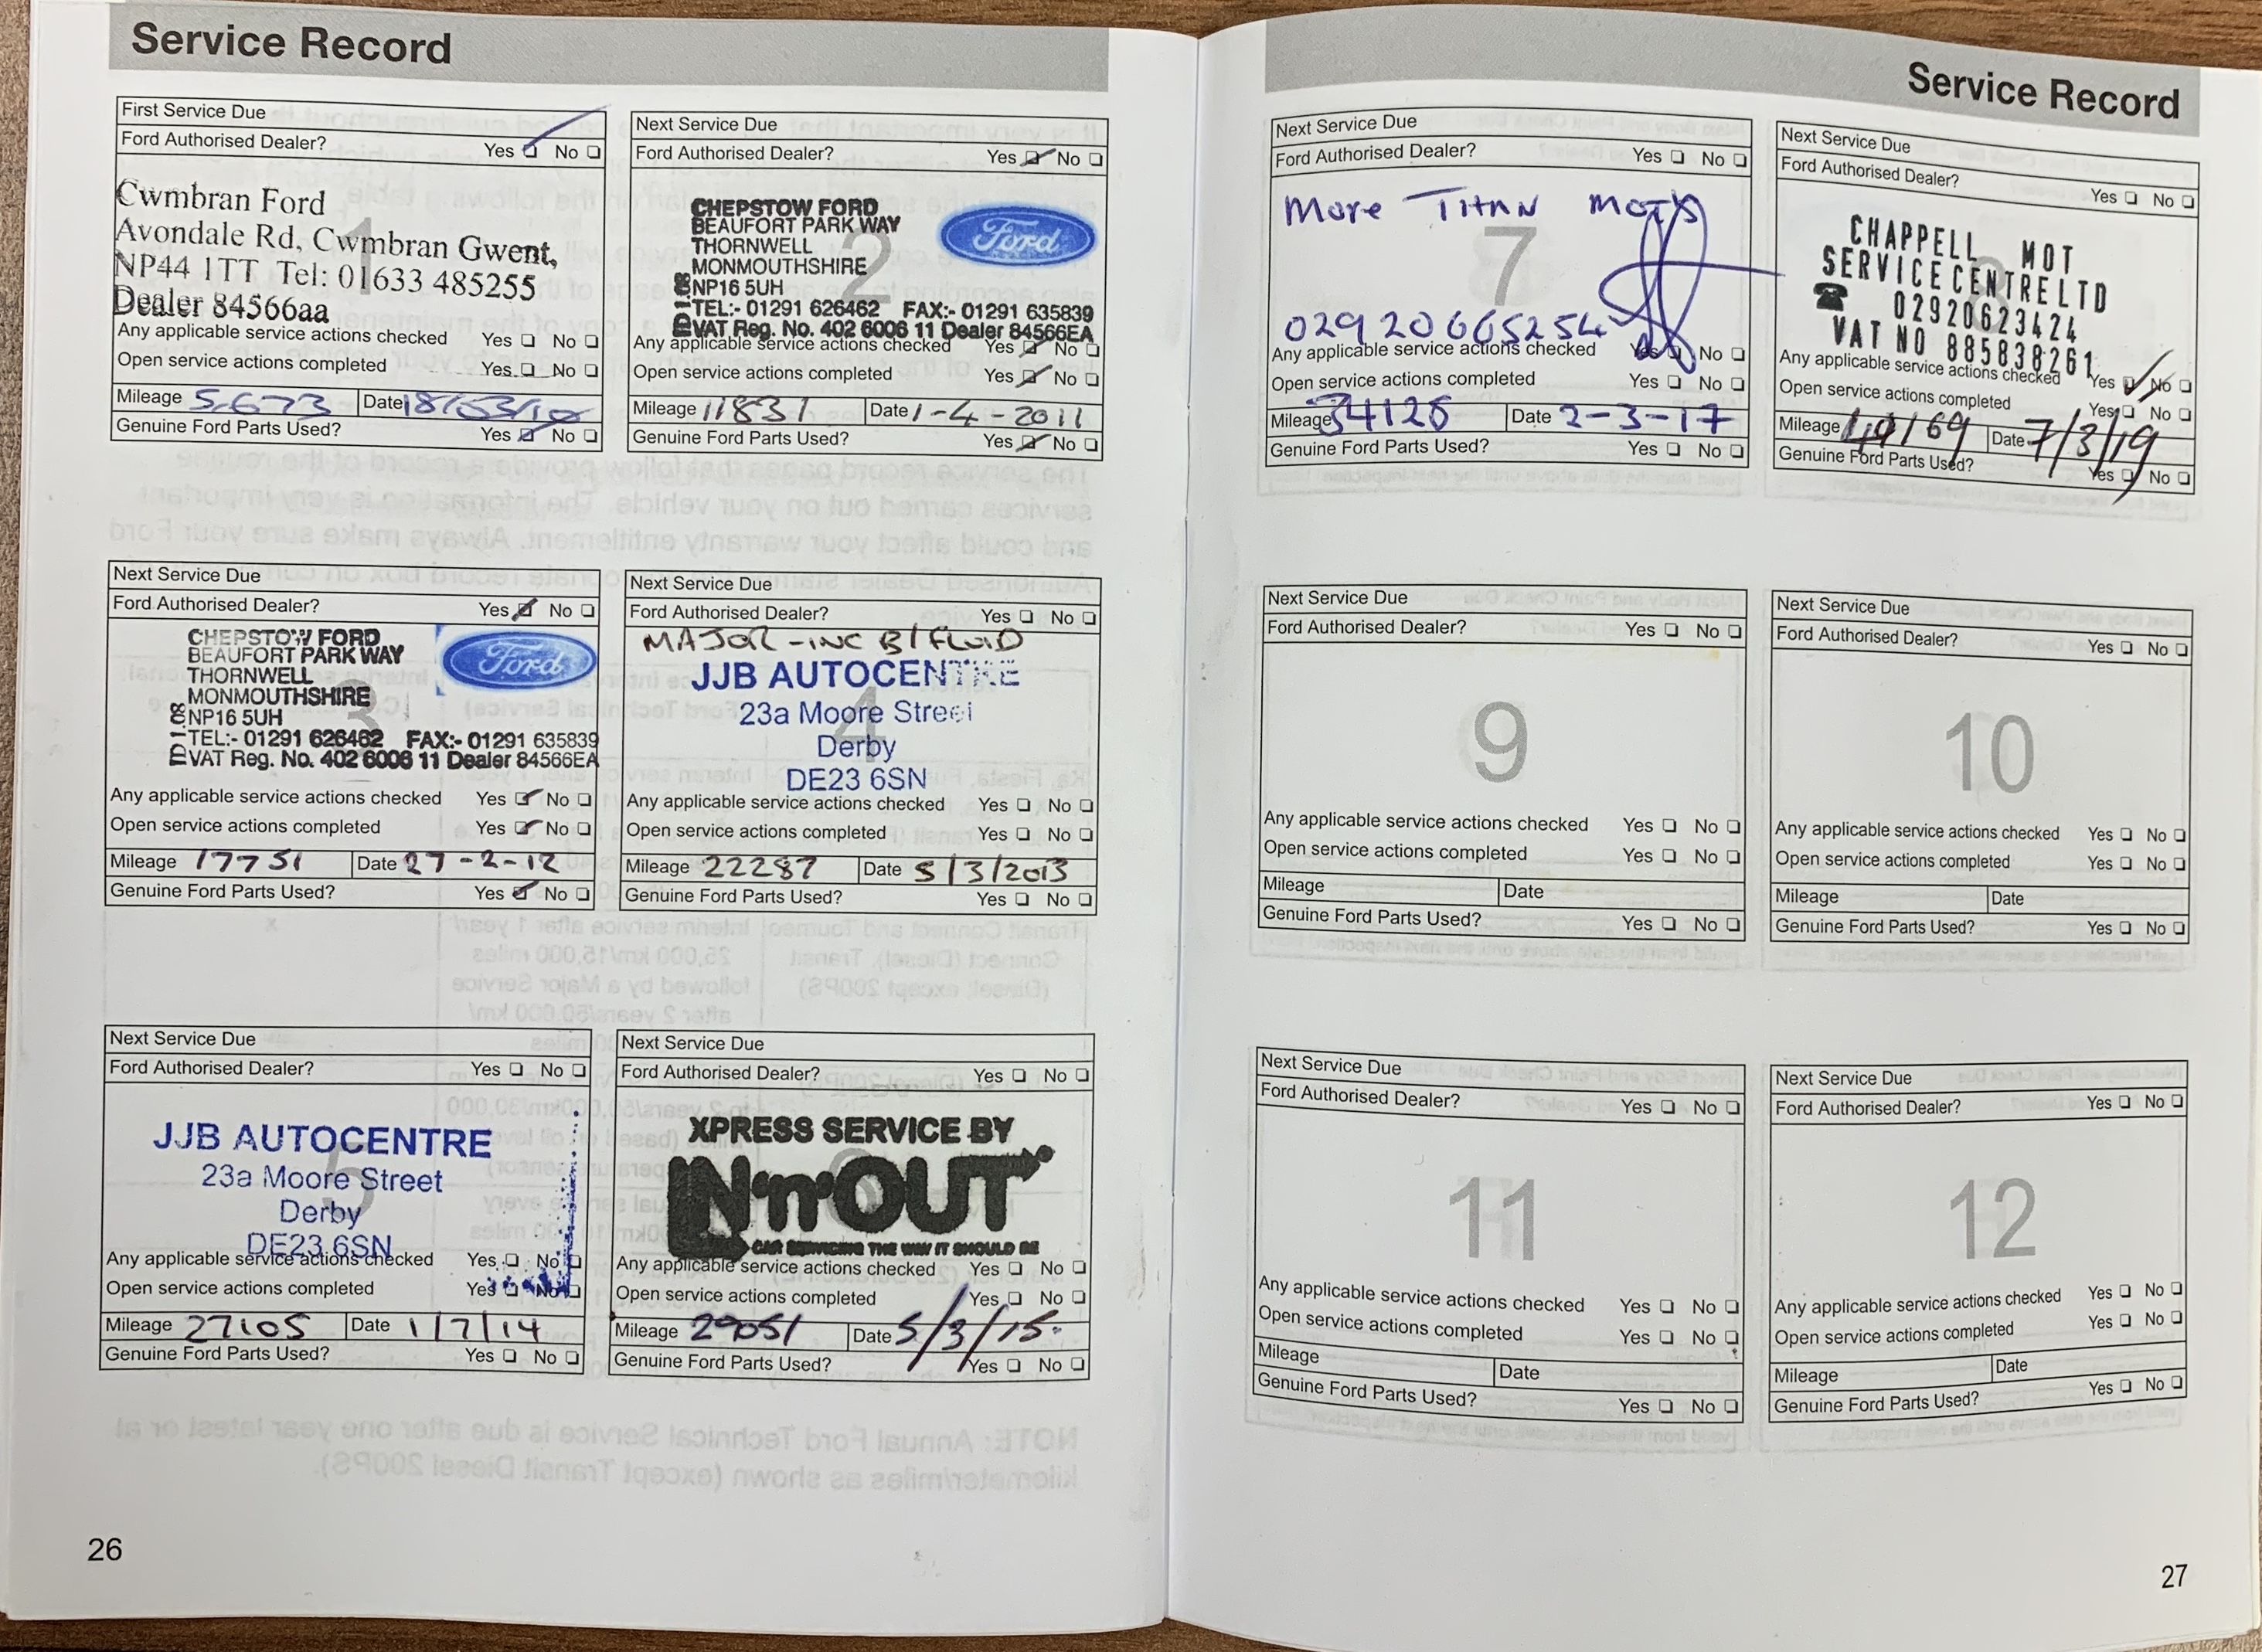 Service Record
First Service Due
Ford Authorised Dealer? Yes No
Cwmbran Ford
Avondale Rd, Cwmbran Gwent,
NP44 1TT Tel: 01633 485255
Dealer 84566aa
1
Any applicable service actions checked Yes No
Open service actions completed Yes No
Mileage 5,673 Date 18/03/10
Genuine Ford Parts Used? Yes No
Next Service Due
Ford Authorised Dealer? Yes No
CHEPSTOW FORD
BEAUFORT PARK WAY
THORNWELL
MONMOUTHSHIRE
NP16 5UH
TEL:- 01291 626462 FAX:- 01291 635839
VAT Reg. No. 402 6006 11 Dealer 84566EA
Ford
2
Any applicable service actions checked Yes No
Open service actions completed Yes No
Mileage 11831 Date 1-4-2011
Genuine Ford Parts Used? Yes No
Next Service Due
Ford Authorised Dealer? Yes No
CHEPSTOW FORD
BEAUFORT PARK WAY
THORNWELL
MONMOUTHSHIRE
NP16 5UH
TEL:- 01291 626462 FAX:- 01291 635839
VAT Reg. No. 402 6006 11 Dealer 84566EA
Ford
3
Any applicable service actions checked Yes No
Open service actions completed Yes No
Mileage 17751 Date 27-2-12
Genuine Ford Parts Used? Yes No
Next Service Due
Ford Authorised Dealer? Yes No
MAJOR - INC B/FLUID
JJB AUTOCENTRE
23a Moore Street
Derby
DE23 6SN
4
Any applicable service actions checked Yes No
Open service actions completed Yes No
Mileage 22287 Date 5/3/2013
Genuine Ford Parts Used? Yes No
Next Service Due
Ford Authorised Dealer? Yes No
JJB AUTOCENTRE
23a Moore Street
Derby
DE23 6SN
5
Any applicable service actions checked Yes No
Open service actions completed Yes No
Mileage 27105 Date 1/7/14
Genuine Ford Parts Used? Yes No
Next Service Due
Ford Authorised Dealer? Yes No
XPRESS SERVICE BY
IN'n'OUT
CAR SERVICING THE WAY IT SHOULD BE
Any applicable service actions checked Yes No
Open service actions completed Yes No
Mileage 29051 Date 5/3/15.
Genuine Ford Parts Used? Yes No
26
Service Record
Next Service Due
Ford Authorised Dealer? Yes No
More Titan
7
029 20665254
Any applicable service actions checked Yes No
Open service actions completed Yes No
Mileage 34126 Date 2-3-17
Genuine Ford Parts Used? Yes No
Next Service Due
Ford Authorised Dealer? Yes No
CHAPPELL MOT
SERVICE CENTRE LTD
☎ 02920623424
VAT NO 885838261
8
Any applicable service actions checked Yes No
Open service actions completed Yes No
Mileage Date 7/3/19
Genuine Ford Parts Used? Yes No
Next Service Due
Ford Authorised Dealer? Yes No
9
Any applicable service actions checked Yes No
Open service actions completed Yes No
Mileage Date
Genuine Ford Parts Used? Yes No
Next Service Due
Ford Authorised Dealer? Yes No
10
Any applicable service actions checked Yes No
Open service actions completed Yes No
Mileage Date
Genuine Ford Parts Used? Yes No
Next Service Due
Ford Authorised Dealer? Yes No
11
Any applicable service actions checked Yes No
Open service actions completed Yes No
Mileage Date
Genuine Ford Parts Used? Yes No
Next Service Due
Ford Authorised Dealer? Yes No
12
Any applicable service actions checked Yes No
Open service actions completed Yes No
Mileage Date
Genuine Ford Parts Used? Yes No
27